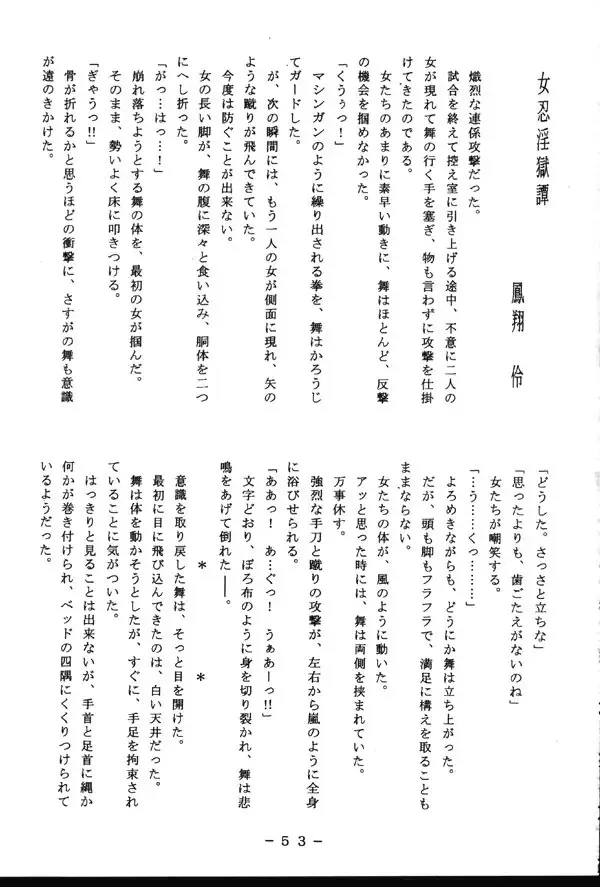 女忍淫獄譚
鳳翔 伶
熾烈な連係攻撃だった。
試合を終えて控え室に引き上げる途中、不意に二人の
女が現れて舞の行く手を塞ぎ、物も言わずに攻撃を仕掛
けてきたのである。
女たちのあまりに素早い動きに、舞はほとんど、反撃
の機会を掴めなかった。
「くうぅっ！」
マシンガンのように繰り出される拳を、舞はかろうじ
てガードした。
が、次の瞬間には、もう一人の女が側面に現れ、矢の
ような蹴りが飛んできていた。
今度は防ぐことが出来ない。
女の長い脚が、舞の腹に深々と食い込み、胴体を二つ
にへし折った。
「がっ…はっ…！」
崩れ落ちようとする舞の体を、最初の女が掴んだ。
そのまま、勢いよく床に叩きつける。
「ぎゃうっ!!」
骨が折れるかと思うほどの衝撃に、さすがの舞も意識
が遠のきかけた。
「どうした。さっさと立ちな」
「思ったよりも、歯ごたえがないのね」
女たちが嘲笑する。
「…う……くっ………」
よろめきながらも、どうにか舞は立ち上がった。
だが、頭も脚もフラフラで、満足に構えを取ることも
ままならない。
女たちの体が、風のように動いた。
アッと思った時には、舞は両側を挟まれていた。
万事休す。
強烈な手刀と蹴りの攻撃が、左右から嵐のように全身
に浴びせられる。
「ああっ！ あ…ぐっ！ うぁあーっ!!」
文字どおり、ぼろ布のように身を切り裂かれ、舞は悲
鳴をあげて倒れた――。
＊ ＊
意識を取り戻した舞は、そっと目を開けた。
最初に目に飛び込んできたのは、白い天井だった。
舞は体を動かそうとしたが、すぐに、手足を拘束され
ていることに気がついた。
はっきりと見ることは出来ないが、手首と足首に縄か
何かが巻き付けられ、ベッドの四隅にくくりつけられて
いるようだった。
－５３－